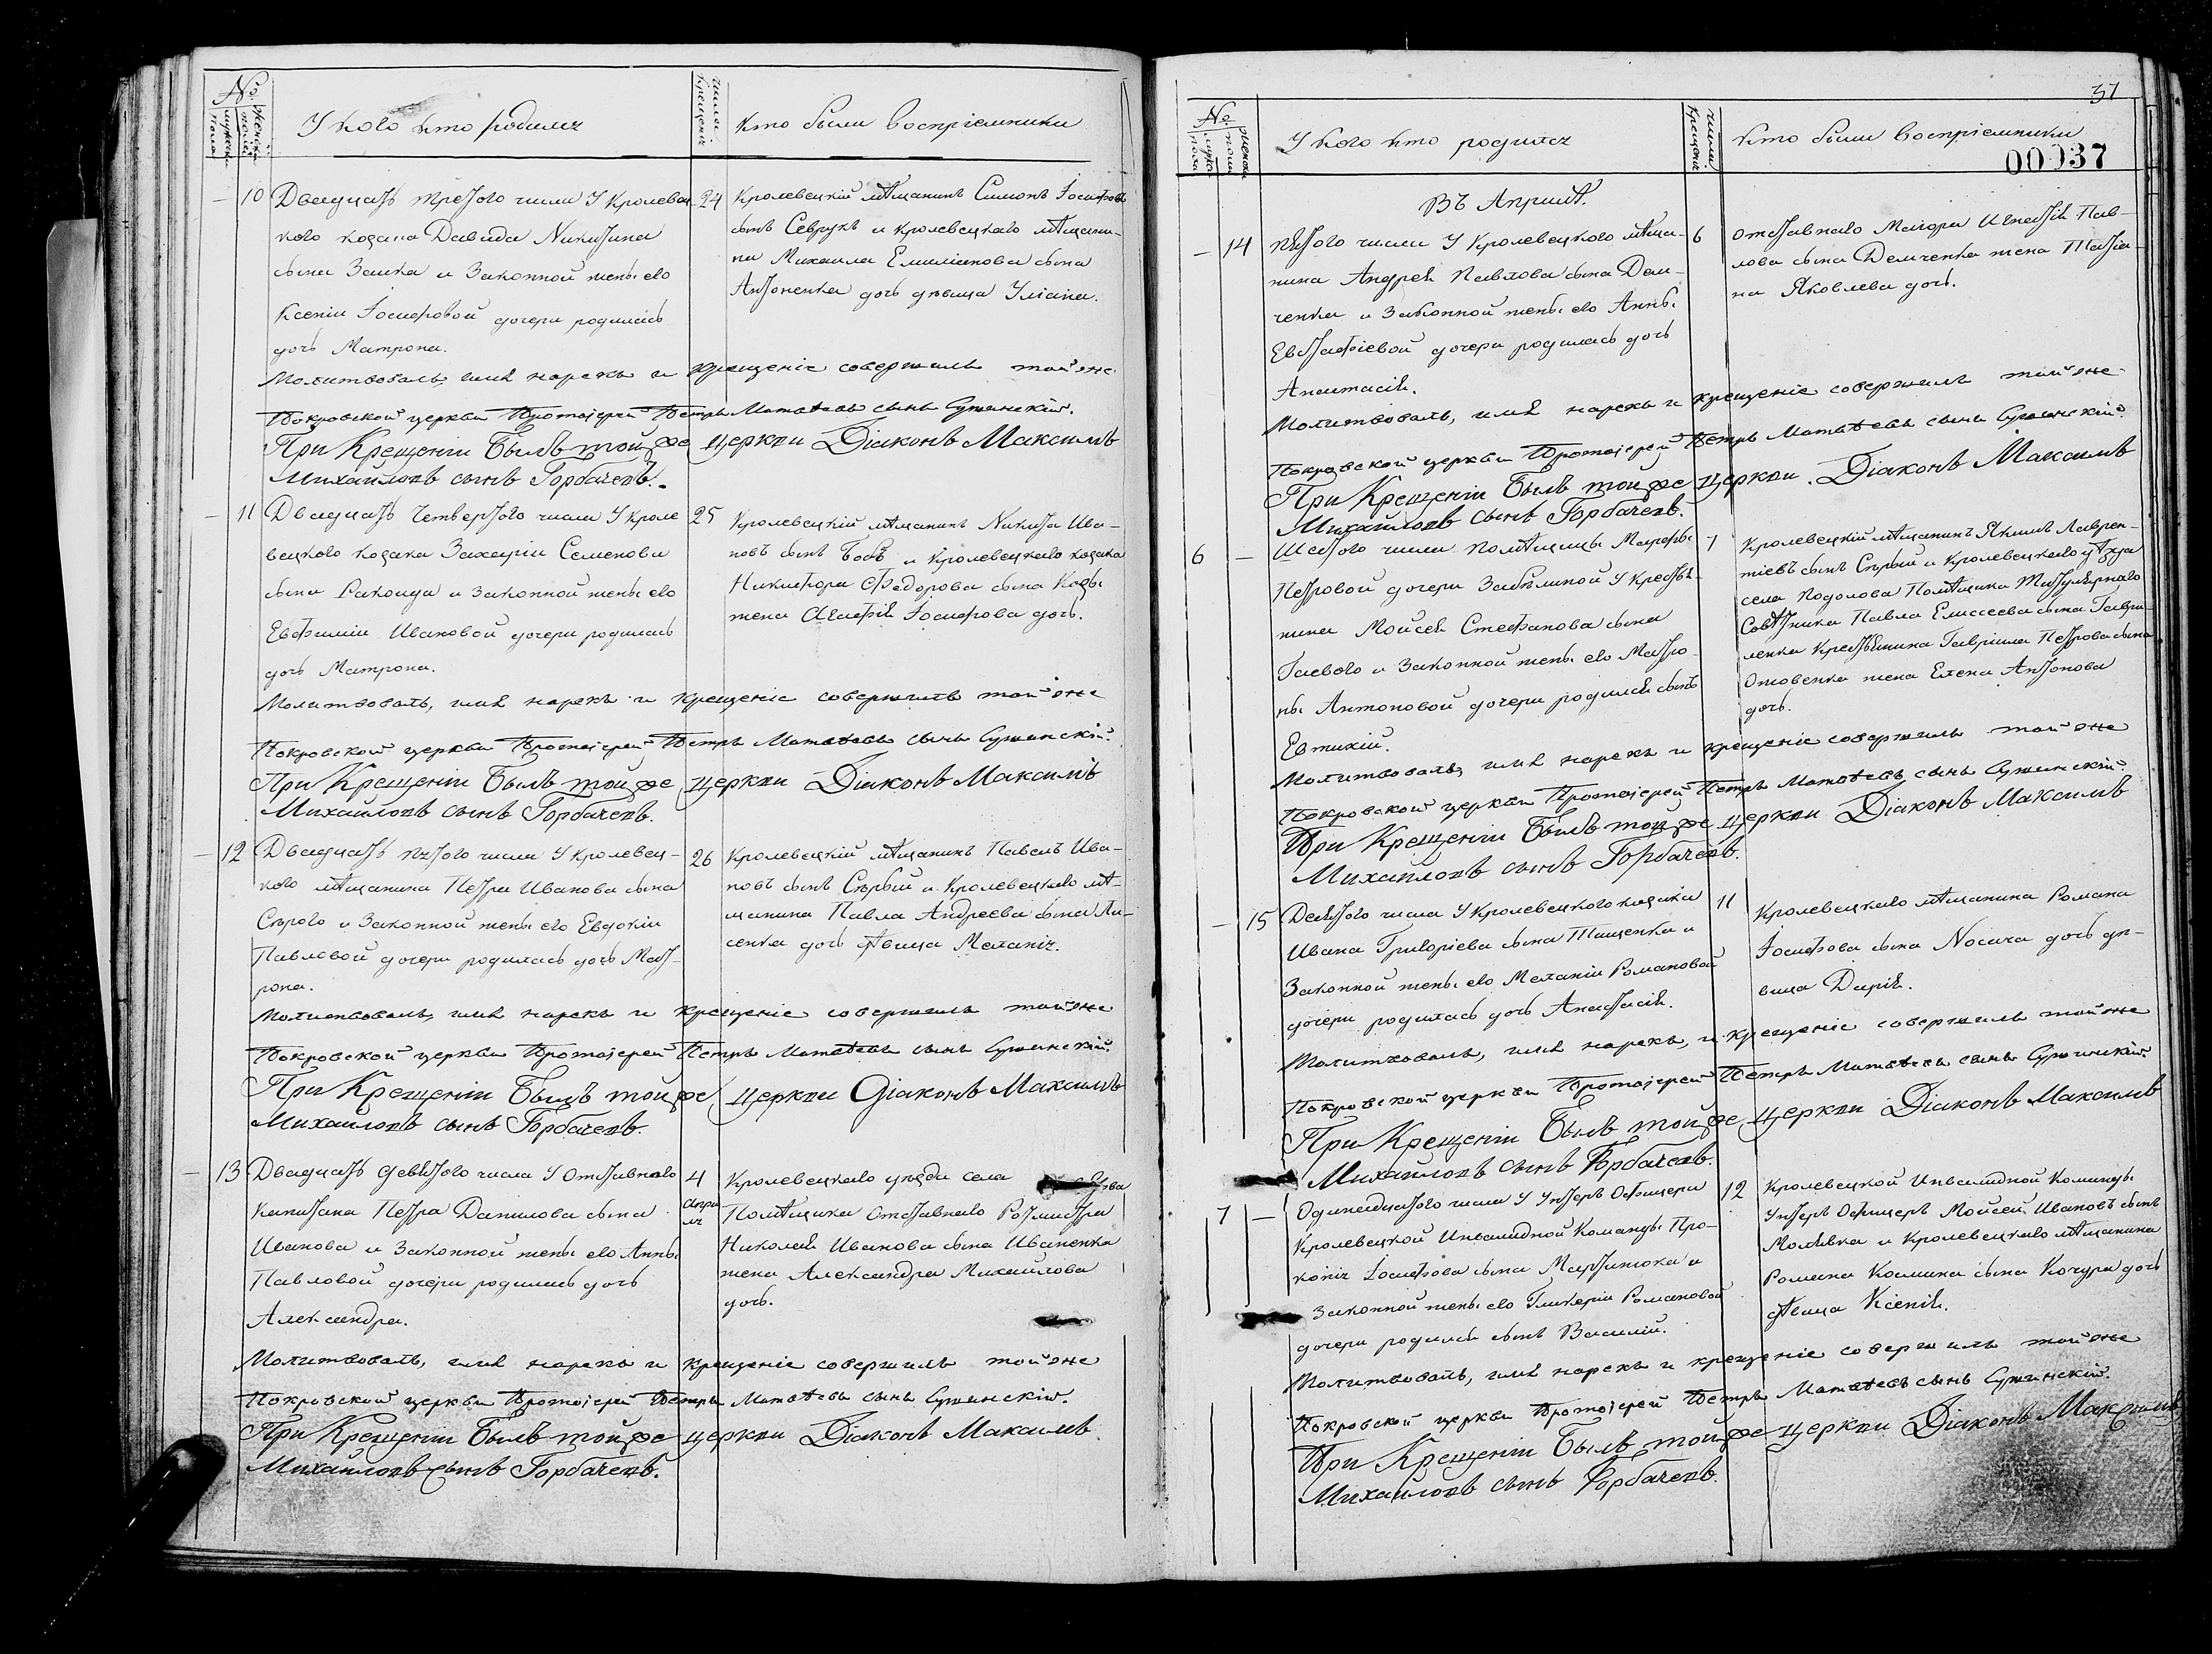 №
мужеска пола
женска пола
У кого кто родился
число крещенія
Кто были воспріемники
10 Двадцать третого числа У Кролевец-
кого козака Давида Никитина
сына Заика и Законной жены его
Ксеніи Іосифовой дочери родилась
дочь Матрона.
24 Кролевецкій мѣщанинъ Симонъ Іосифовъ
сынъ Севрукъ и Кролевецкаго мѣщани-
на Михаила Емиліанова сына
Антоненка дочь дѣвица Уліана.
Молитвовалъ, имя нарекъ и крещеніе совершилъ той же
Покровской церкви Протоіерей Петръ Матвѣевъ сынъ Сушинскій.
При Крещеніи Былъ той же церкви Діаконъ Максимъ
Михайловъ сынъ Горбачевъ.
11 Двадцать Четвертого числа У Кроле
вецкого козака Захаріи Семенова
сына Ракоида и Законной жены его
Евфиміи Ивановой дочери родилась
дочь Матрона.
25 Кролевецкій мѣщанинъ Никита Ива-
новъ сынъ Бобъ и Кролевецкаго козака
Никифора Федорова сына Козы
жена Агафія Іосифова дочь.
Молитвовалъ, имя нарекъ и крещеніе совершилъ той же
Покровской церкви Протоіерей Петръ Матвѣевъ сынъ Сушинскій.
При Крещеніи Былъ той же церкви Діаконъ Максимъ
Михайловъ сынъ Горбачевъ.
12 Двадцать пятого числа У Кролевец-
кого мѣщанина Петра Иванова сына
Сѣрого и Законной жены его Евдокіи
Павловой дочери родилась дочь Мат-
рона.
26 Кролевецкій мѣщанинъ Павелъ Ива-
новъ сынъ Сѣрый и Кролевецкаго мѣ-
щанина Павла Андреева сына Ли-
сенка дочь дѣвица Меланія.
Молитвовалъ, имя нарекъ и крещеніе совершилъ той же
Покровской церкви Протоіерей Петръ Матвѣевъ сынъ Сушинскій.
При Крещеніи Былъ той же церкви Діаконъ Максимъ
Михайловъ сынъ Горбачевъ.
13 Двадцать девятого числа У Отставнаго
Капитана Петра Данилова сына
Иванова и Законной жены его Анны
Павловой дочери родилась дочь
Александра.
4 Апреля Кролевецкаго уѣзда села
Помѣщика Отставнаго Ротмистра
Николая Иванова сына Иваненка
жена Александра Михайлова
дочь.
Молитвовалъ, имя нарекъ и крещеніе совершилъ той же
Покровской церкви Протоіерей Петръ Матвѣевъ сынъ Сушинскій.
При Крещеніи Былъ той же церкви Діаконъ Максимъ
Михайловъ сынъ Горбачевъ.
37
№
мужеска пола
женска пола
У кого кто родился
число крещенія
Кто были воспріемники
00037
Въ Априлѣ.
14 Пятого числа У Кролевецкого мѣща-
нина Андрея Павлова сына Дем-
ченка и Законной жены его Анны
Евстафіевой дочери родилась дочь
Анастасія.
6 Отставнаго Маіора Игнатія Пав-
лова сына Демченка жена Татіа-
на Яковлева дочь.
Молитвовалъ, имя нарекъ и крещеніе совершилъ той же
Покровской церкви Протоіерей Петръ Матвѣевъ сынъ Сушинскій.
При Крещеніи Былъ той же церкви Діаконъ Максимъ
Михайловъ сынъ Горбачевъ.
6 Шестого числа помѣщицы Марфы
Петровой дочери Забѣлиной У Крестья-
нина Моисея Стефанова сына
Гаевого и Законной жены его Матро-
ны Антоновой дочери родился сынъ
Евтихій.
7 Кролевецкій мѣщанинъ Якимъ Лаврен-
тіевъ сынъ Сѣрый и Кролевецкаго уѣзда
села Подолова Помѣщика Титулярнаго
Совѣтника Павла Елисеева сына Гаври-
ленка Крестьянина Гавріила Петрова сына
жена Елена Антонова
дочь.
Молитвовалъ, имя нарекъ и крещеніе совершилъ той же
Покровской церкви Протоіерей Петръ Матвѣевъ сынъ Сушинскій.
При Крещеніи Былъ той же церкви Діаконъ Максимъ
Михайловъ сынъ Горбачевъ.
15 Девятого числа У Кролевецкого козака
Ивана Григоріева сына Тащенка и
Законной жены его Меланіи Романовой
дочери родилась дочь Анастасія.
11 Кролевецкаго мѣщанина Романа
Іосифова сына Носача дочь дѣ-
вица Дарія.
Молитвовалъ, имя нарекъ, и крещеніе совершилъ той же
Покровской церкви Протоіерей Петръ Матвѣевъ сынъ Сушинскій.
При Крещеніи Былъ той же церкви Діаконъ Максимъ
Михайловъ сынъ Горбачевъ.
7 Одинадцатого числа У Унтеръ Офицера
Кролевецкой Инвалидной Команды Про-
копія Іосифова сына Мартинюка и
Законной жены его Гликеріи Романовой
дочери родился сынъ Василій.
12 Кролевецкой Инвалидной Команды
Унтеръ Офицеръ Моисей Ивановъ сынъ
Молявка и Кролевецкаго мѣщанина
Романа Космина сына Кочура дочь
дѣвица Ксенія.
Молитвовалъ, имя нарекъ и крещеніе совершилъ той же
Покровской церкви Протоіерей Петръ Матвѣевъ сынъ Сушинскій.
При Крещеніи Былъ той же церкви Діаконъ Максимъ
Михайловъ сынъ Горбачевъ.